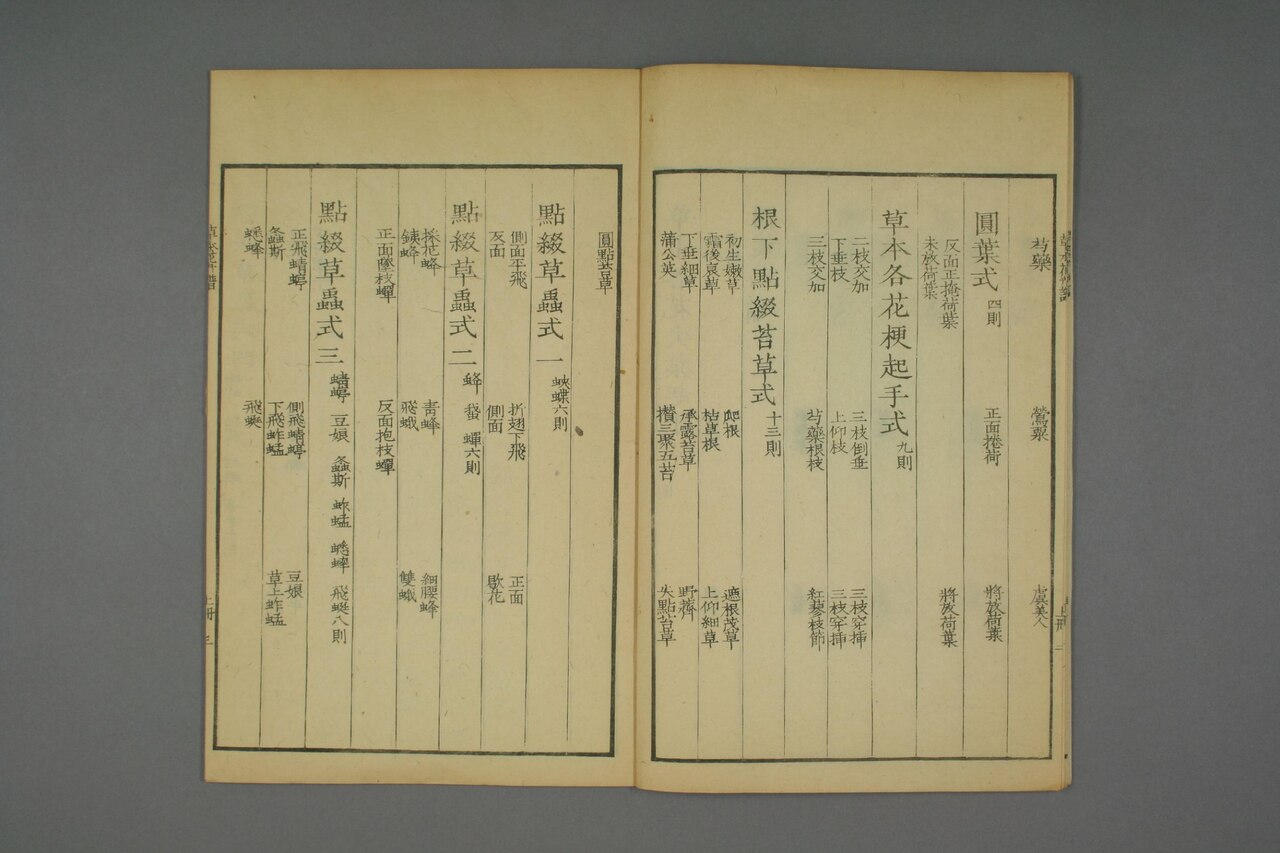 芍藥　鶯粟　虞美人
圓葉式 四則
正面捲荷　將放荷葉
反面正掩荷葉　將放荷葉
未放荷葉
草本各花梗起手式 九則
二枝交加　三枝倒垂　三枝穿插
下垂枝　上仰枝　三枝穿插
三枝交加　芍藥根枝　紅蓼枝節
根下點綴苔草式 十三則
初生嫩草　爬根　遮根茂草
霜後衰草　枯草根　上仰細草
下垂細草　承露苔草　野薺
蒲公英　攢三聚五苔　尖點苔草
圓點苔草
點綴草蟲式一 蛺蝶六則
側面平飛　折翅下飛　正面
反面　側面　歇花
點綴草蟲式二 蜂 蛾 蟬六則
採花蜂　青蜂　細腰蜂
鐵蜂　飛蛾　雙蛾
正面墜枝蟬　反面抱枝蟬
點綴草蟲式三 蜻蜓 豆娘 螽斯 蚱蜢 蟋蟀 飛螁八則
正飛蜻蜓　側飛蜻蜓　豆娘
螽斯　下飛蚱蜢　草上蚱蜢
上冊 三